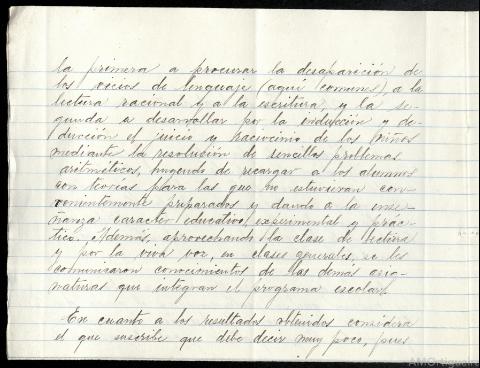 la primera a procurar la desaparición de
los vicios de lenguaje (aquí comunes), a la
lectura racional y a la escritura, y la se-
gunda a desarrollar por la inducción y de-
ducción el juicio y raciocinio de los niños
mediante la resolución de sencillos problemas
aritméticos, huyendo de recargar a los alumnos
con teorías para las que no estuvieran con-
venientemente preparados y dando a la ense-
ñanza caracter educativo, experimental y prác-
tico. Además, aprovechando la clase de lectura
y por la viva voz, en clases generales, se les
comunicaron conocimientos de las demás asig-
naturas que integran el programa escolar.
En cuanto a los resultados obtenidos considera
el que suscribe que debe decir muy poco, pues
AMOrtigueira